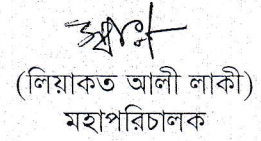 (লিয়াকত আলী লাকী)
মহাপরিচালক